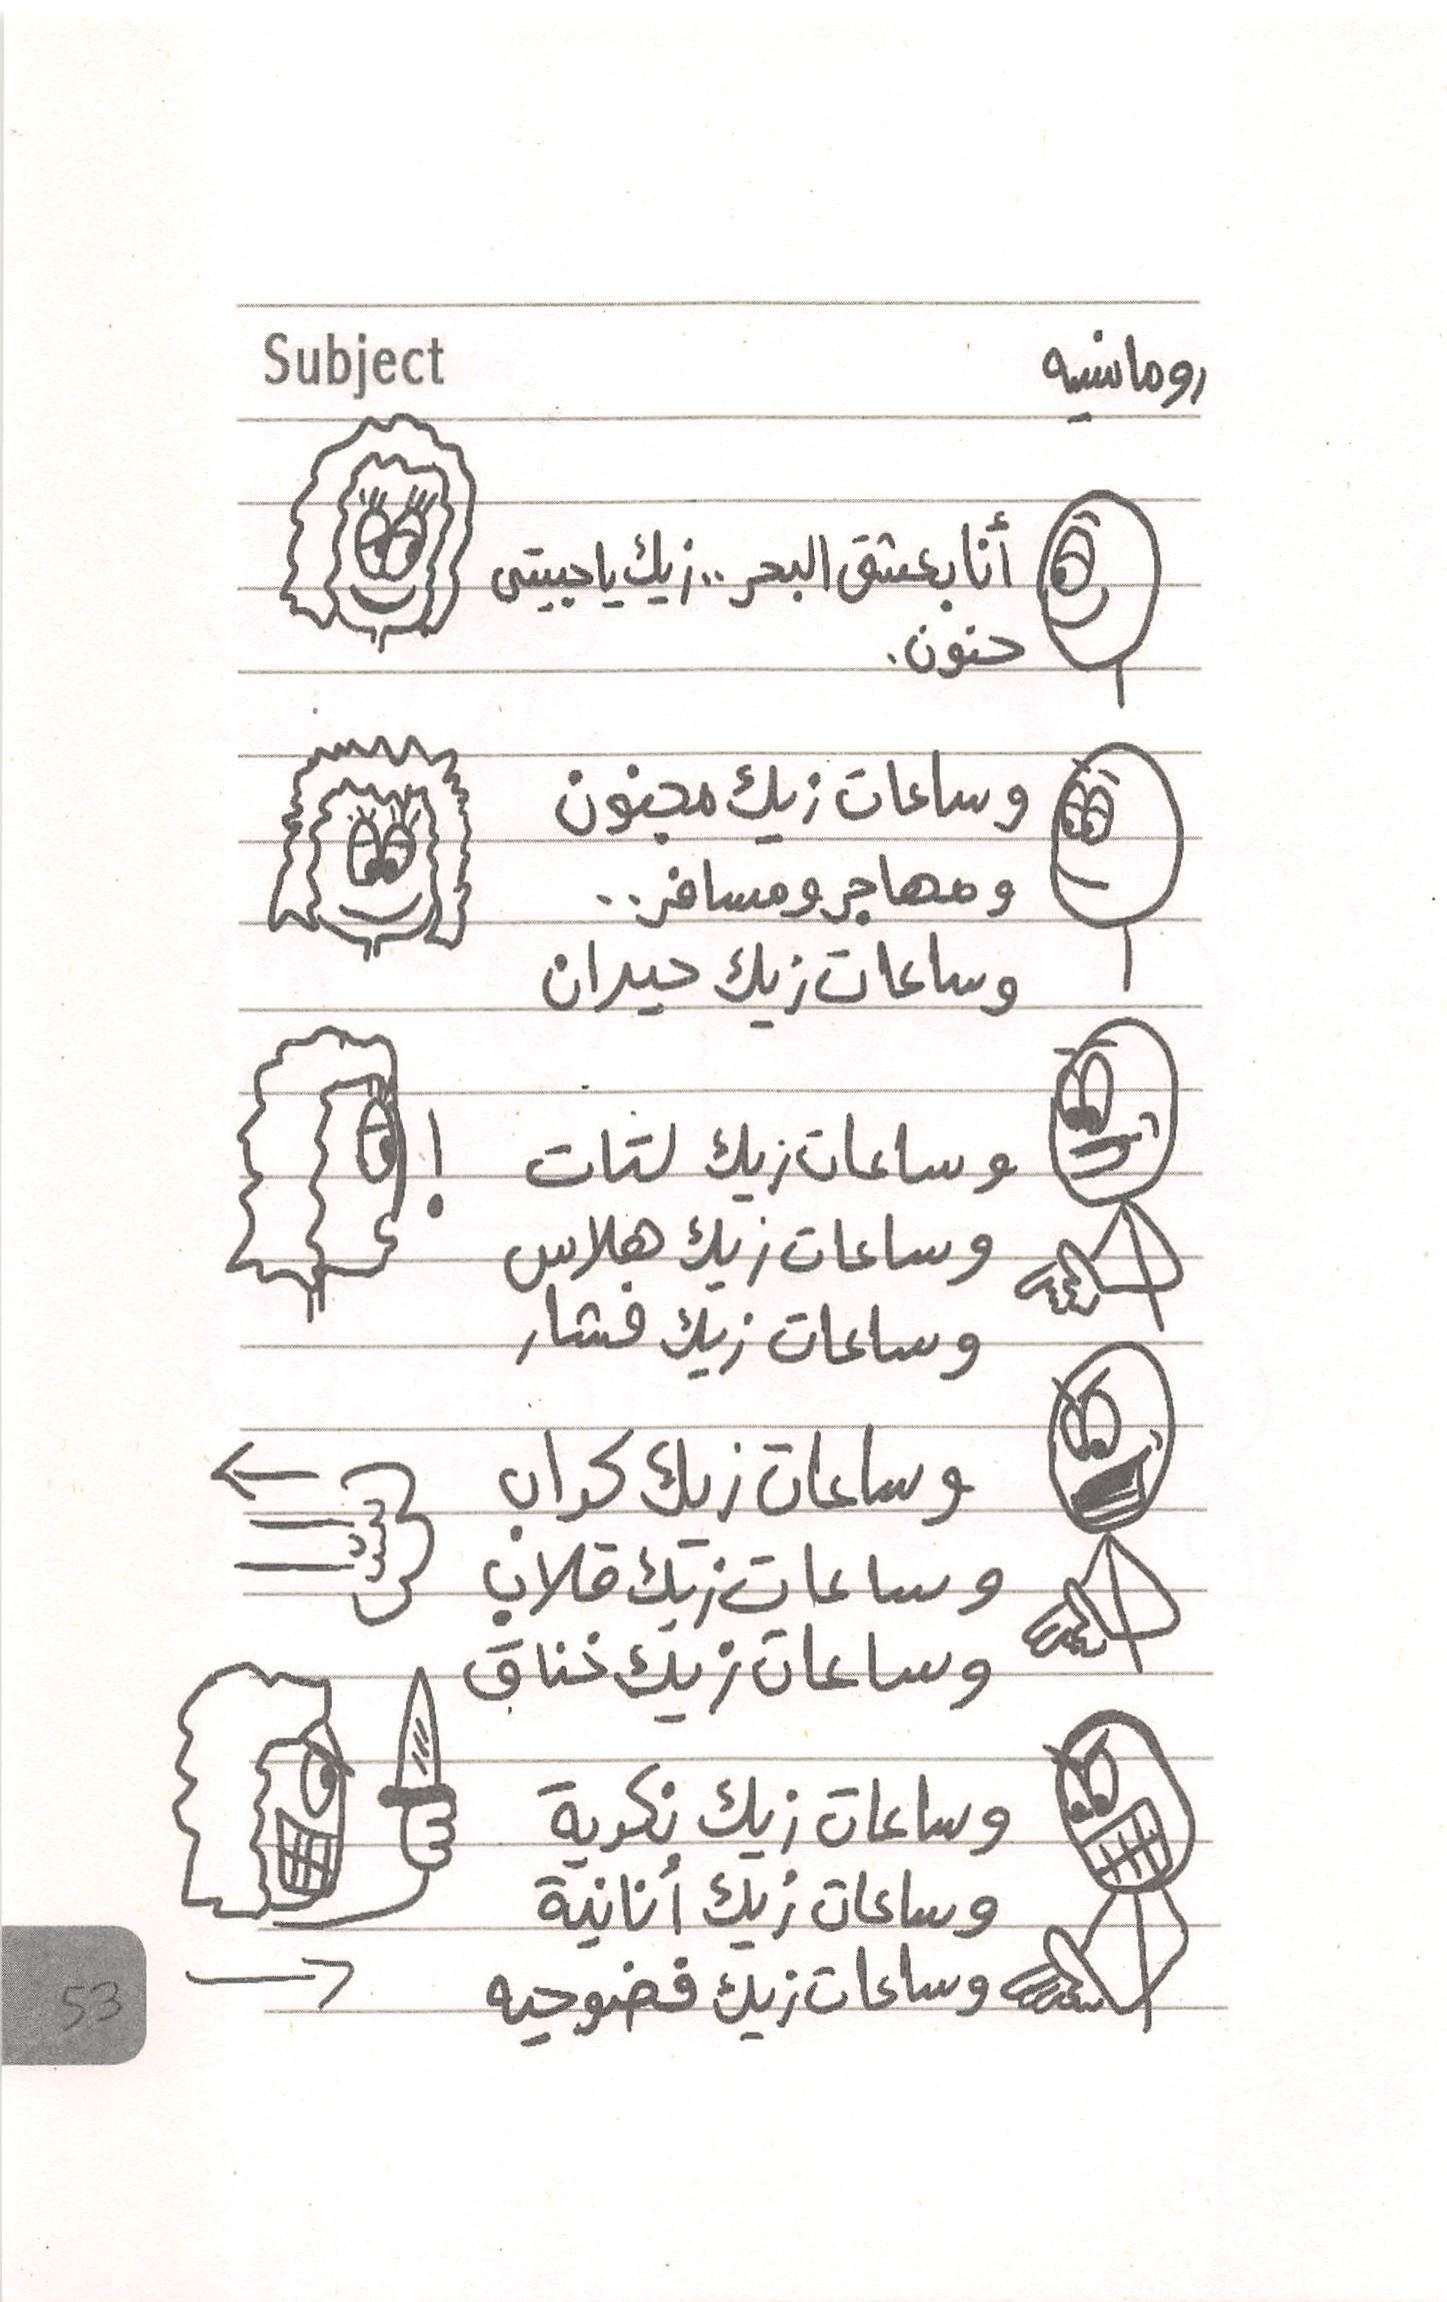 Subject
رومانسيه
أنا بعشق البحر .. زيك يا حبيبتى
حنون .
وساعات زيك مجنون
ومهاجر ومسافر ..
وساعات زيك حيران
وساعات زيك لتات
!
وساعات زيك هلاس
وساعات زيك فشار
وساعات زيك كداب
وساعات زيك قلاب
وساعات زيك خناق
وساعات زيك نكدية
وساعات زيك أنانية
وساعات زيك فضوحيه
53